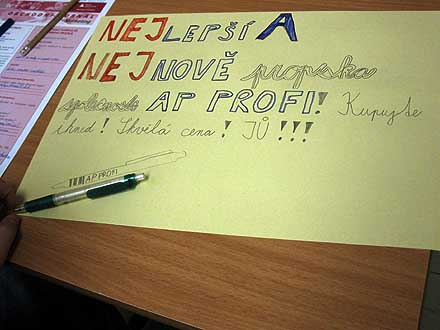 NEJLEPŠÍ A
NEJNOVĚ propska
společnosti AP PROFI! Kupujte
ihned! Skvělá cena! JŮ!!!
AP PROFI